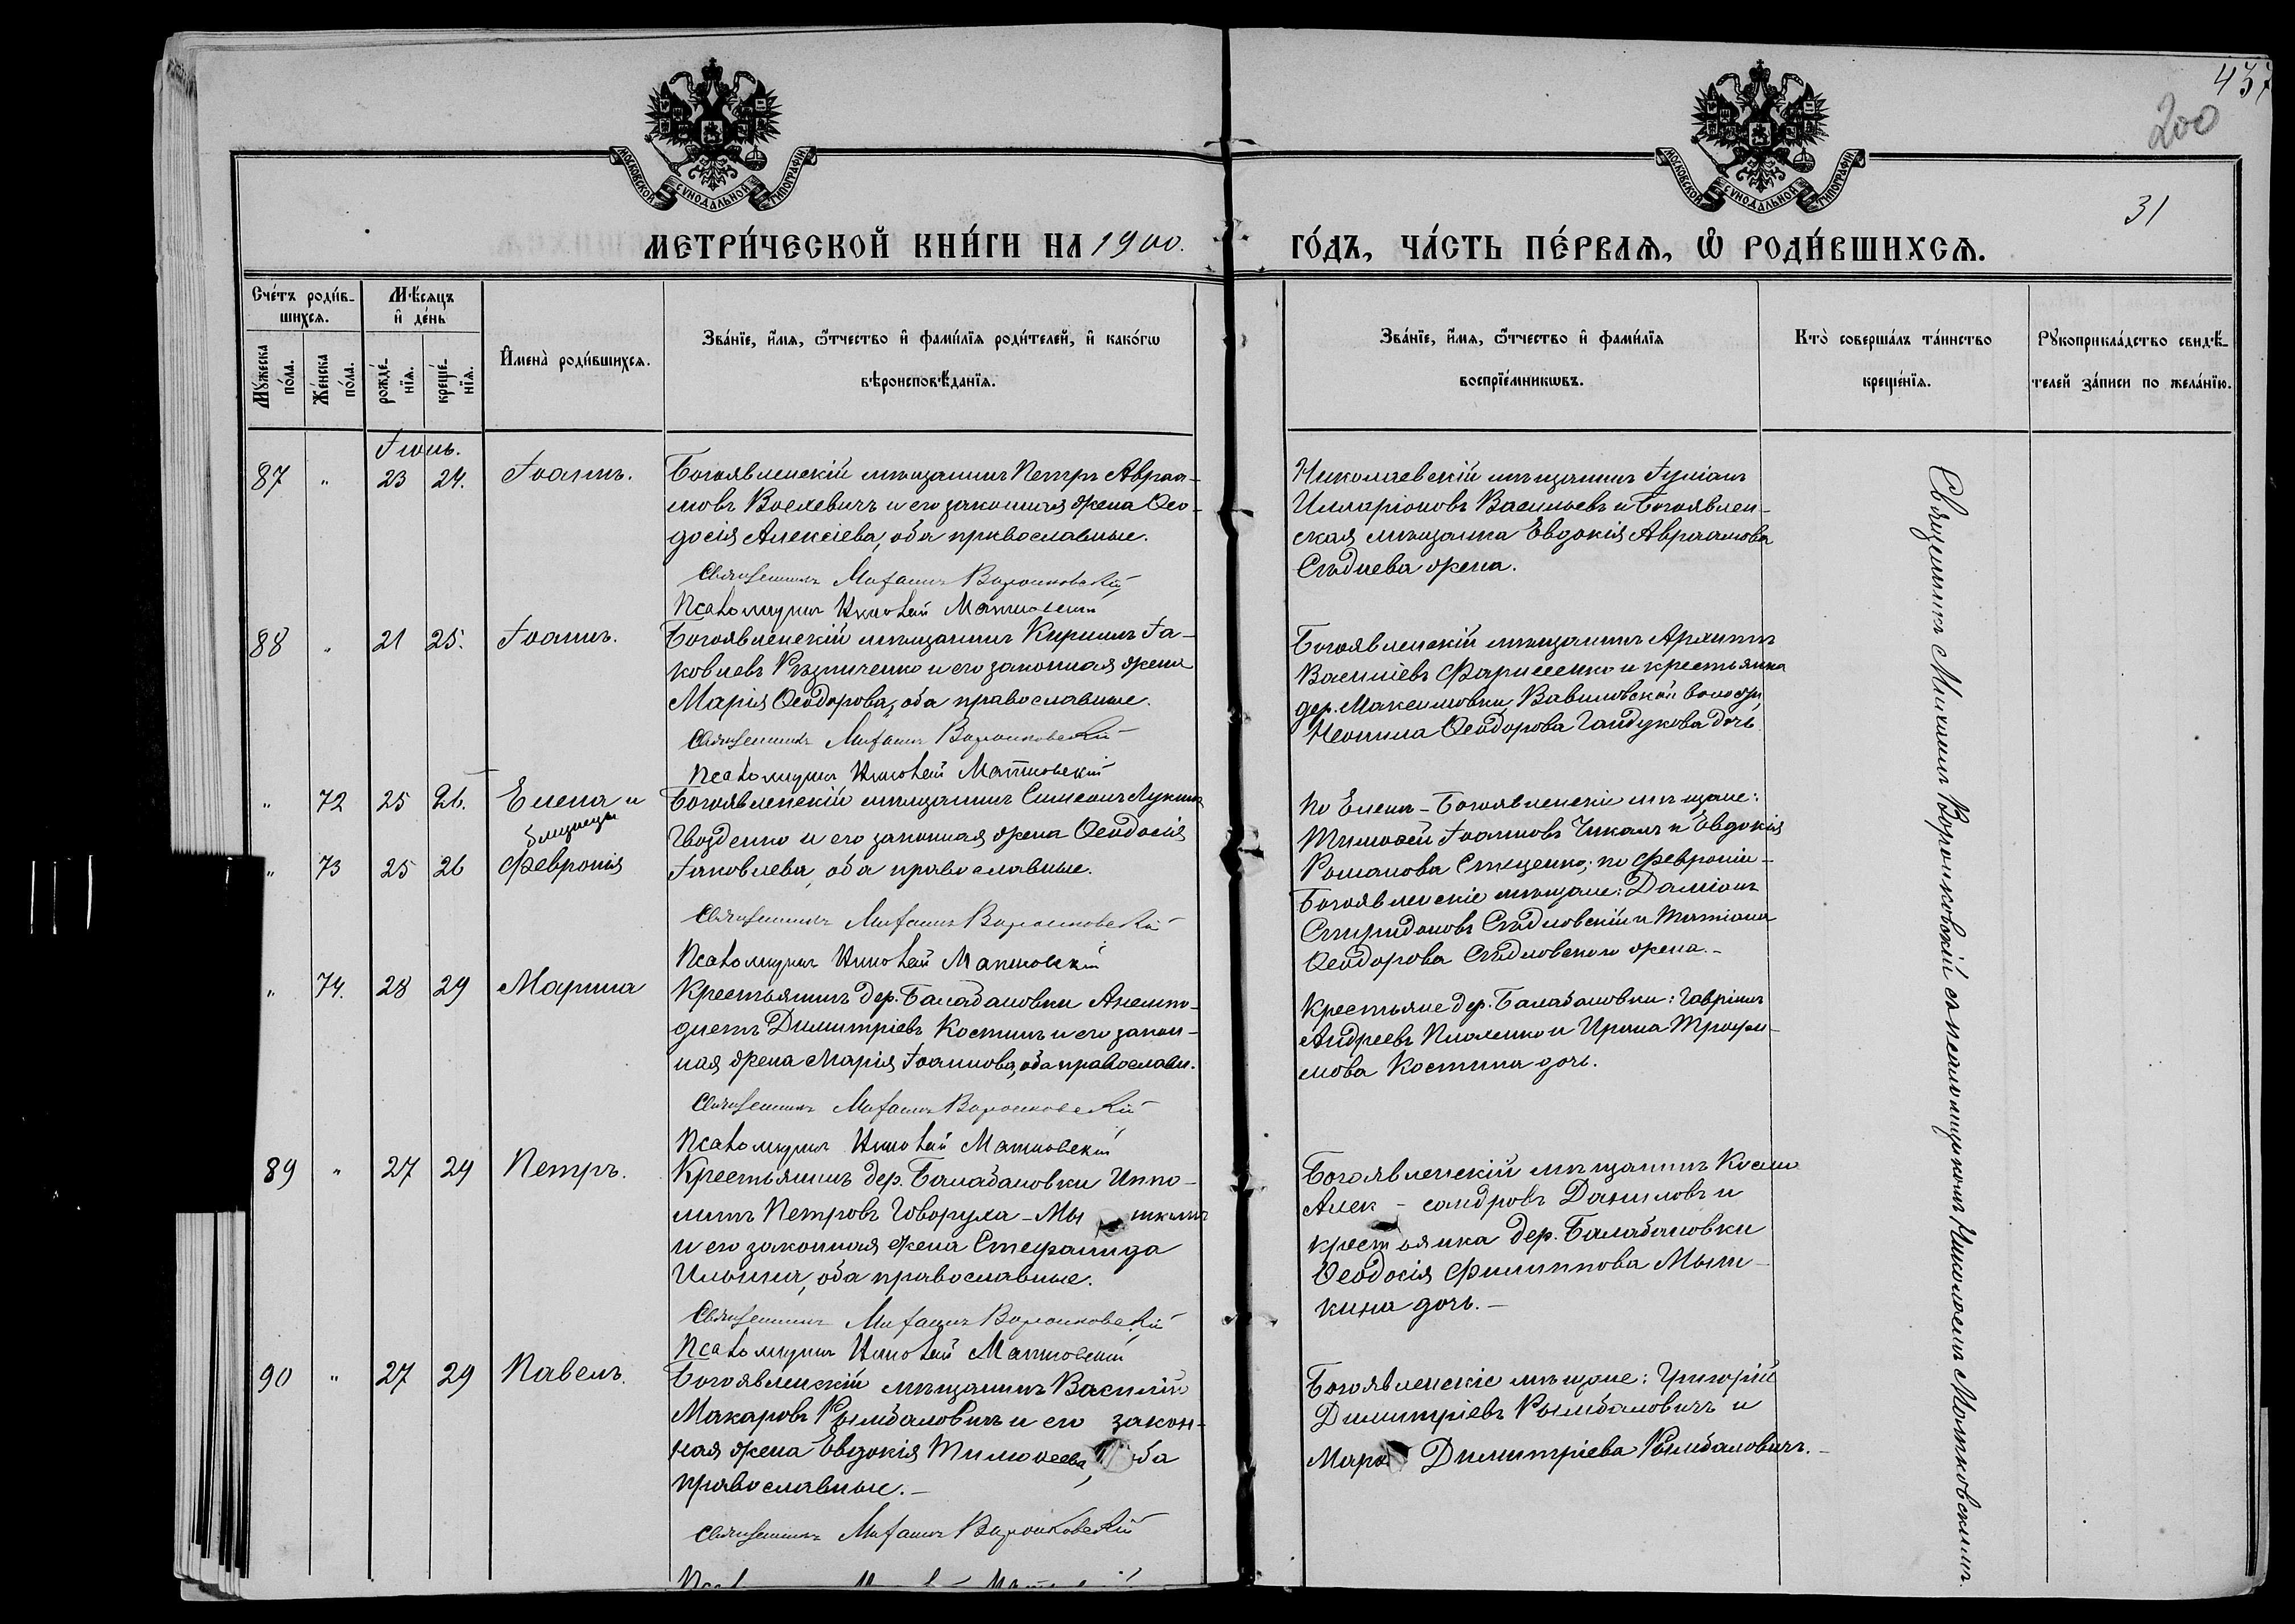 437
200
31
МОСКОВСКОЙ СѴНОДАЛЬНОЙ ТИПОГРАФІИ
МОСКОВСКОЙ СѴНОДАЛЬНОЙ ТИПОГРАФІИ
МЕТРИ́ЧЕСКОЙ КНИ́ГИ НА 1900.
ГО́ДЪ, ЧА́СТЬ ПЕ́РВАѦ, Ѡ҆ РОДИ́ВШИХСѦ.
Сче́тъ роди́в-
шихсѧ.
Мѣ́сѧцъ
и҆ де́нь
Мꙋ́жеска по́ла.
Же́нска по́ла.
рожде́-
нїѧ.
креще́-
нїѧ.
И҆мена̀ роди́вшихсѧ.
Зва́нїе, и҆́мѧ, ѻ҆́тчество и҆ фами́лїѧ роди́телей, и҆ како́гѡ
вѣроисповѣ́данїѧ.
Зва́нїе, и҆́мѧ, ѻ҆́тчество и҆ фами́лїѧ
воспрїе́мникѡвъ.
Кто̀ соверша́лъ та́инство
креще́нїѧ.
Рꙋкоприкла́дство свидѣ́-
телей за́писи по жела́нїю.
Іюнь.
87 " 23 24. Іоаннъ.
Богоявленскій мѣщанинъ Петръ Авраа-
мовъ и его законная жена Ѳео-
досія Алексіева, оба православные.
Священникъ Михаилъ Воронковскій
Псаломщикъ Николай Матковскій
Николаевскій мѣщанинъ Іуліанъ
Илларіоновъ Васильевъ и Богоявлен-
ская мѣщанка Евдокія Авраамова
жена.
88 " 21 25. Іоаннъ.
Богоявленскій мѣщанинъ Кириллъ Іа-
ковлевъ Рѣзниченко и его законная жена
Марія Ѳеодорова, оба православные.
Священникъ Михаилъ Воронковскій
Псаломщикъ Николай Матковскій
Богоявленскій мѣщанинъ Архиппъ
Василіевъ и крестьянка
дер. Максимовки, Вавиловской волости,
Неонила Ѳеодорова Гайдукова дочь
" 72 25 26. Елена и
близнецы
" 73 25 26 Февронія
Богоявленскій мѣщанинъ Симеонъ Лукинъ
Гвозденко и его законная жена Ѳеодосія
Іаковлева, оба православные.
Священникъ Михаилъ Воронковскій
Псаломщикъ Николай Матковскій
По Еленѣ - Богоявленскіе мѣщане:
Тимоѳей Іоанновъ Чикалъ и Евдокія
Романова Стеценко; по Февроніи -
Богоявленскіе мѣщане: Даміанъ
Спиридоновъ Сѣдловскій и Татіана
Ѳеодорова Сѣдловскаго жена. -
" 74. 28 29 Марина
Крестьянинъ дер. Балабановки Анемпо-
дистъ Димитріевъ Костинъ и его закон-
ная жена Марія Іоаннова, оба православн.
Священникъ Михаилъ Воронковскій
Псаломщикъ Николай Матковскій
Крестьяне дер. Балабановки: Гавріилъ
Андреевъ и Ирина Трофи-
мова Костина дочь.
89 " 27 29 Петръ.
Крестьянинъ дер. Балабановки Иппо-
литъ Петровъ Говоруха-Мы шкинъ
и его законная жена Стефанида
Ильина, оба православные.
Священникъ Михаилъ Воронковскій
Псаломщикъ Николай Матковскій
Богоявленскій мѣщанинъ Косма
Алек - сандровъ Даниловъ и
крестьянка дер. Балабановки
Ѳеодосія Филиппова Мыш-
кина дочь. -
90 " 27 29 Павелъ.
Богоявленскій мѣщанинъ Василій
Макаровъ Рымбаловичъ и его закон-
ная жена Евдокія Тимоѳеева, оба
православные. -
Священникъ Михаилъ Воронковскій
Богоявленскіе мѣщане: Григорій
Димитріевъ Рымбаловичъ и
Димитріева Рымбаловичъ. -
Священникъ Михаилъ Воронковскій съ псаломщикомъ Николаемъ Матковскимъ.